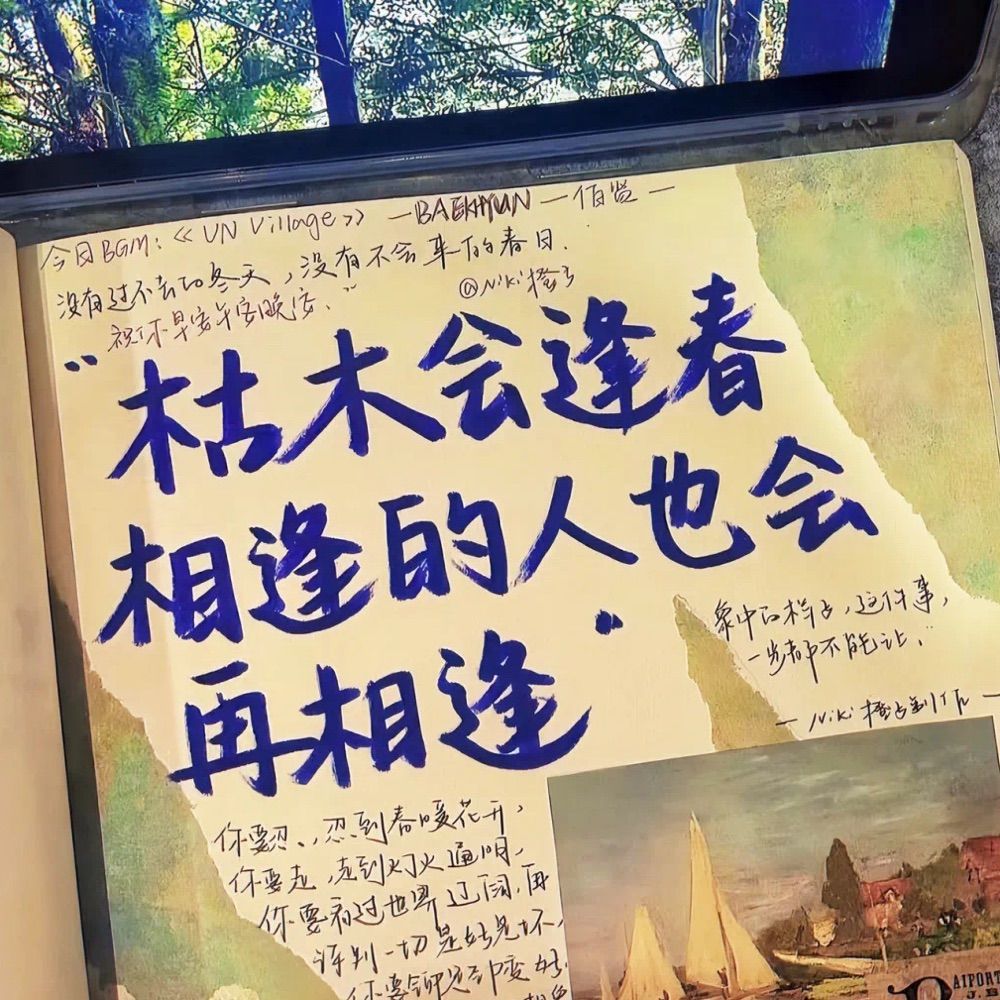 今日BGM:《UN Village》 —BAEKHYUN—伯贤—
没有过不去的冬天,没有不会来的春日.
@Niki橙子
祝你早安午安晚安.”
“枯木会逢春
相逢的人也会
再相逢.
象中的样子,这件事,
一步都不能让.”
—Niki橙子制作—
你要忍、忍到春暖花开,
你要走,走到灯火通明,
你要看过世界辽阔,再
评判一切是好是坏,
你要
变好
AIPORT
J.B